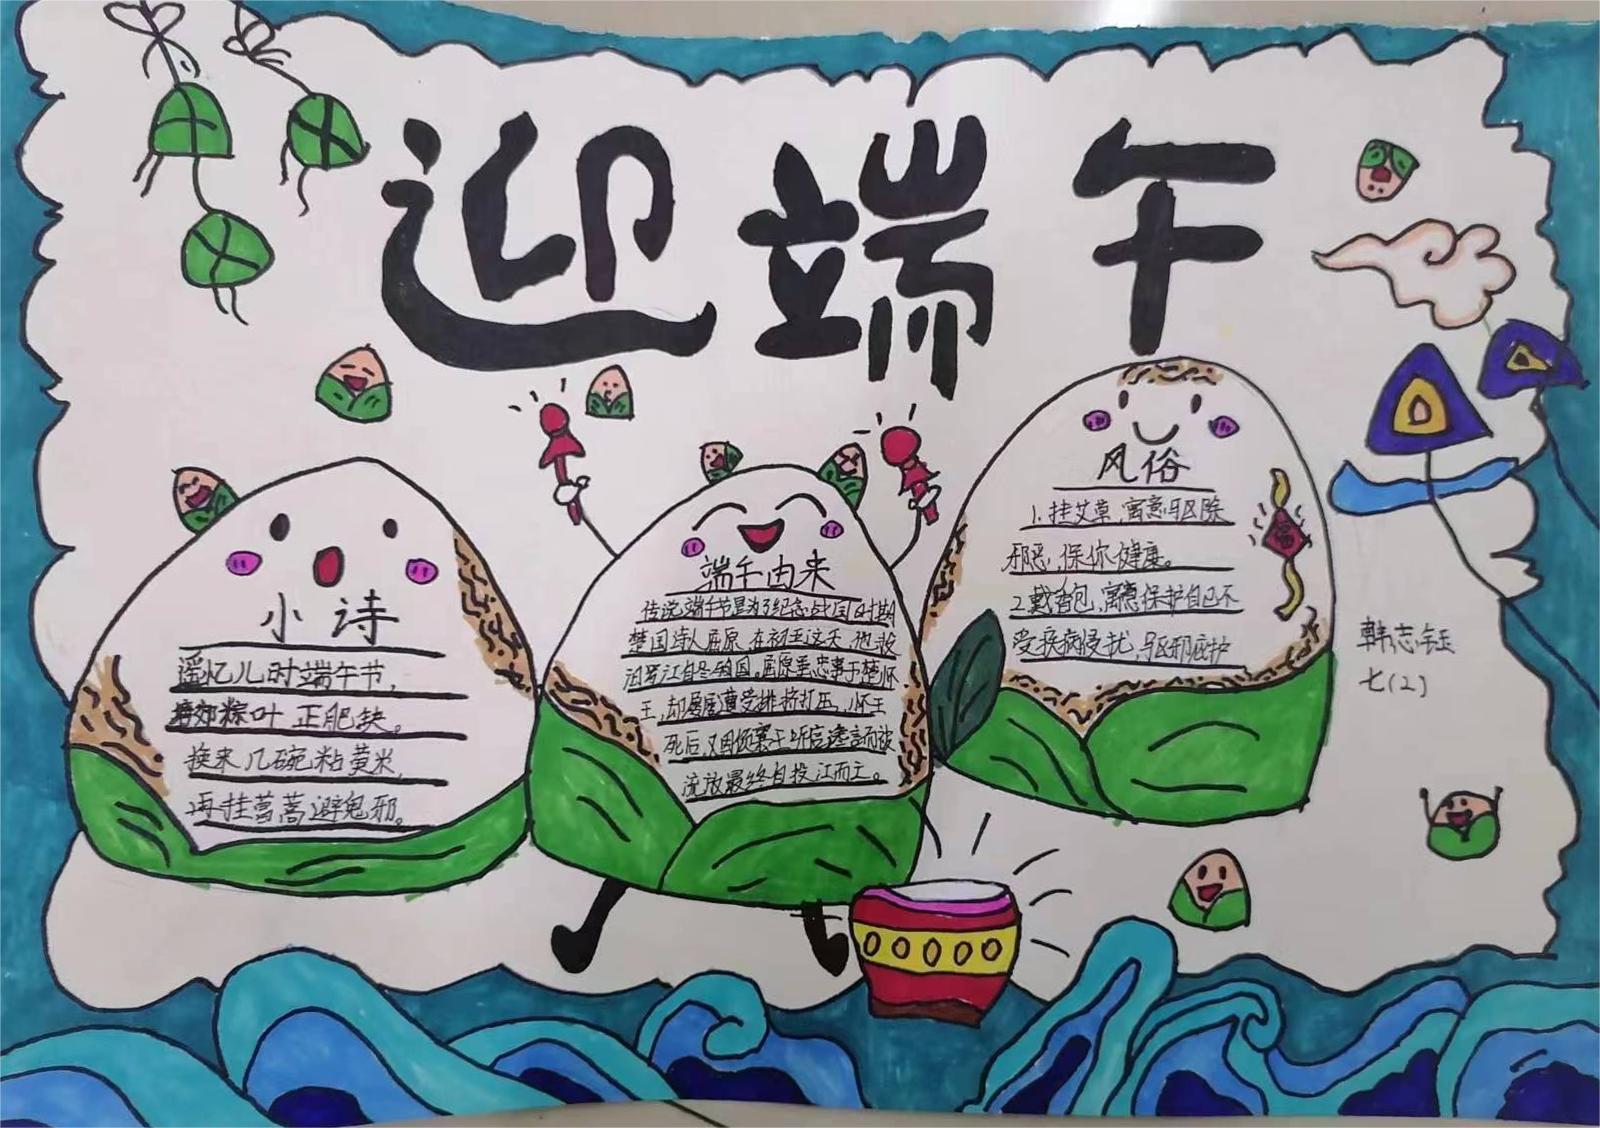 迎端午
小诗
遥忆儿时端午节,
粽叶正肥缺。
换来几碗粘黄米,
再挂菖蒿避鬼邪。
端午由来
传说端午节是为了纪念战国时期
楚国诗人屈原,在初五这天,他投
汨罗江自尽殉国。屈原坠忠事于楚怀
王,却屡屡遭受排挤打压,怀王
死后,又因顷襄王听信谗言而被
流放最终自投江而亡。
风俗
1.挂艾草,寓意驱除
邪恶,保你健康。
2.戴香包,寓意保护自己不
受疾病侵扰,驱邪庇护
福
韩志钰
七(2)